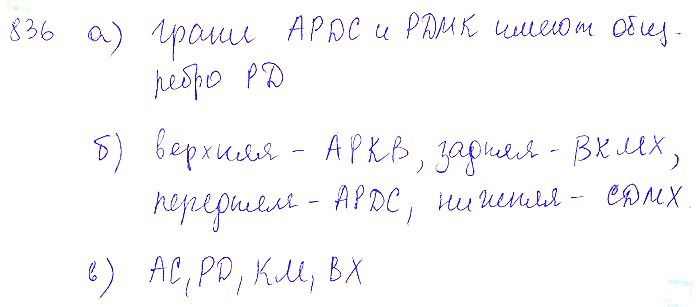 836 а) грани APDC и PDMK имеют общ.
ребро PD
б) верхняя - APKB, задняя - BKMX,
передняя - APDC, нижняя - CDMX.
в) AC, PD, KM, BX